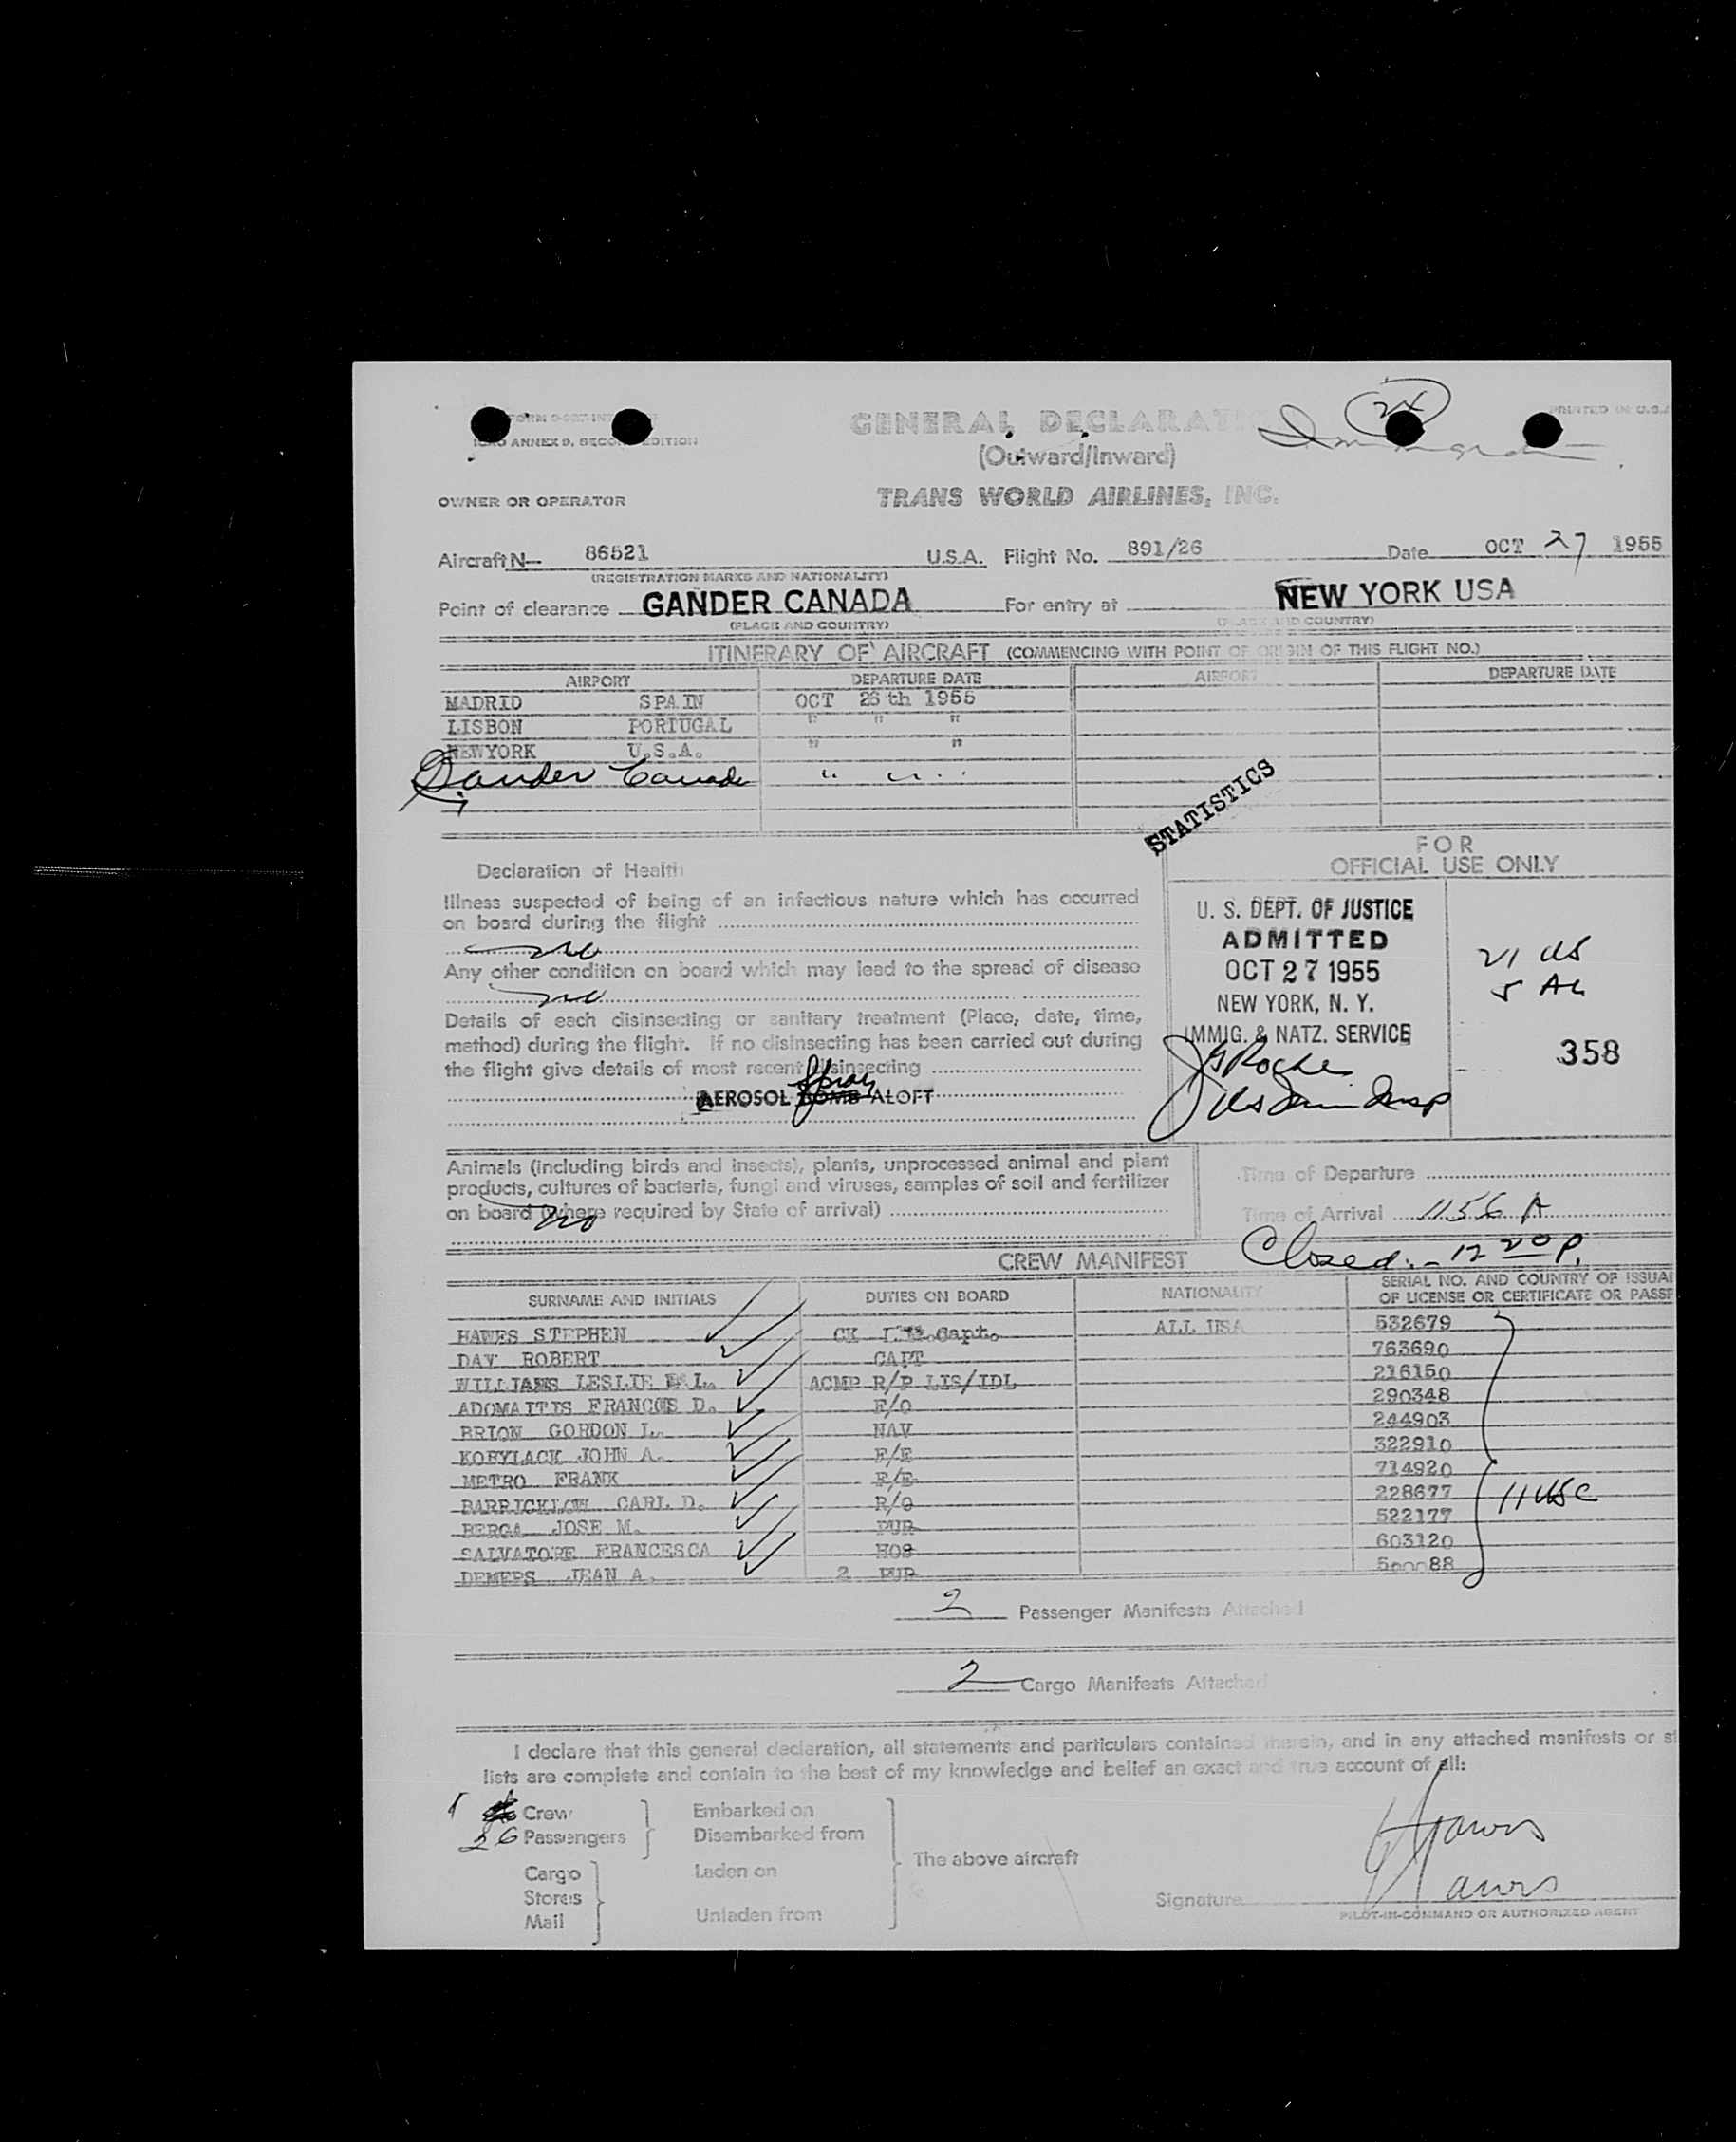 ICAO ANNEX 9, SECOND EDITION
PRINTED IN U.S.A
GENERAL DECLARATION
24
(Outward/Inward)
OWNER OR OPERATOR
TRANS WORLD AIRLINES, INC.
Aircraft N— 86521 U.S.A. Flight No. 891/26 Date OCT 27 1955
(REGISTRATION MARKS AND NATIONALITY)
Point of clearance GANDER CANADA For entry at NEW YORK USA
(PLACE AND COUNTRY) (PLACE AND COUNTRY)
ITINERARY OF AIRCRAFT (COMMENCING WITH POINT OF ORIGIN OF THIS FLIGHT NO.)
AIRPORT DEPARTURE DATE AIRPORT DEPARTURE DATE
MADRID SPAIN OCT 26th 1955
LISBON PORTUGAL " " "
NEWYORK U.S.A. " "
Gander Canada " "
STATISTICS
FOR
OFFICIAL USE ONLY
Declaration of Health
Illness suspected of being of an infectious nature which has occurred
on board during the flight
no
Any other condition on board which may lead to the spread of disease
no
Details of each disinsecting or sanitary treatment (Place, date, time,
method) during the flight. If no disinsecting has been carried out during
the flight give details of most recent disinsecting
Spray
AEROSOL BOMB ALOFT
U. S. DEPT. OF JUSTICE
ADMITTED
OCT 27 1955
NEW YORK, N. Y.
IMMIG. & NATZ. SERVICE
JG Roche
21 US
5 AL
358
Animals (including birds and insects), plants, unprocessed animal and plant
products, cultures of bacteria, fungi and viruses, samples of soil and fertilizer
on board (where required by State of arrival)
no
Time of Departure
Time of Arrival 1156 A
Closed - 12 20 P.
CREW MANIFEST
SURNAME AND INITIALS DUTIES ON BOARD NATIONALITY SERIAL NO. AND COUNTRY OF ISSUA
OF LICENSE OR CERTIFICATE OR PASSP
HAWES STEPHEN CK Capt. ALL USA 532679
DAY ROBERT CAPT 763690
WILLIAMS LESLIE L. ACMP R/P LIS/IDL 216150
ADOMAITIS FRANCIS D. F/O 290348
BRION GORDON L. NAV 244903
KOBYLACK JOHN A. F/E 322910
METRO FRANK F/E 714920
BARRICKLOW CARL D. R/O 228677
BERGA JOSE M. PUR 522177
SALVATORE FRANCESCA HOS 603120
DEMERS JEAN A. 2 PUR 500088
11 USC
2 Passenger Manifests Attached
2 Cargo Manifests Attached
I declare that this general declaration, all statements and particulars contained therein, and in any attached manifests or s
lists are complete and contain to the best of my knowledge and belief an exact and true account of all:
Crew
26 Passengers
Embarked on
Disembarked from
Cargo
Stores
Mail
Laden on
Unladen from
The above aircraft
Signature
Hawes
PILOT-IN-COMMAND OR AUTHORIZED AGENT